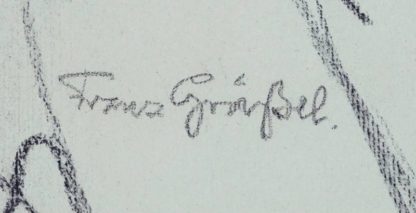 Franz Gräßel.